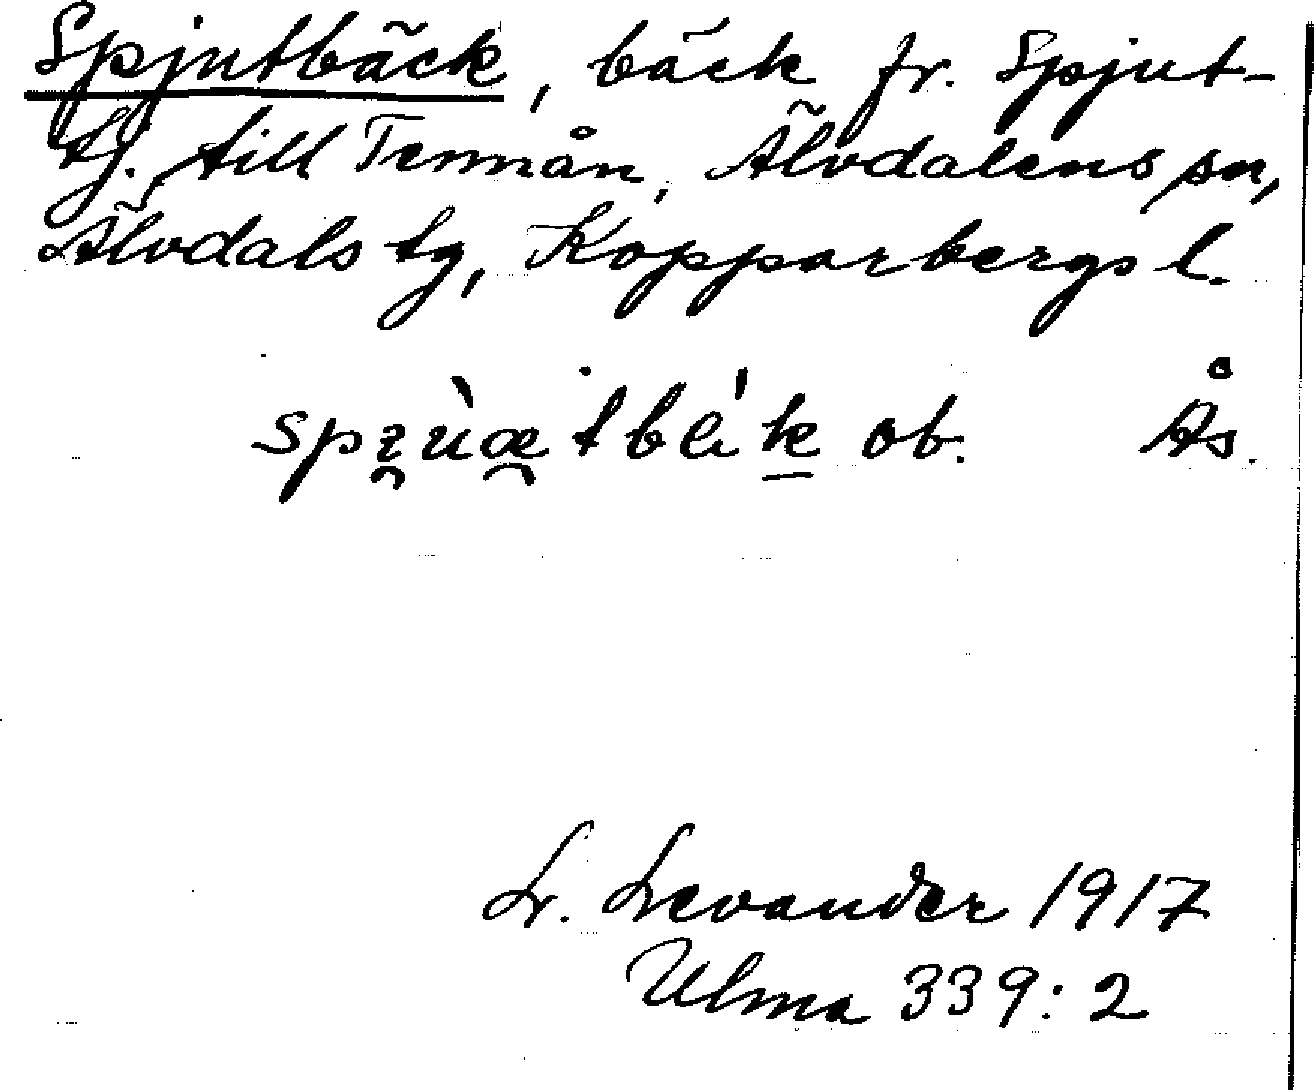 Spjutbäck, bäck fr. Spjut-
tj. till Tennån, Älvdalens sn,
Älvdals tg, Kopparbergs l.
ob. Ås.
L. Levander 1917
Ulma 339:2